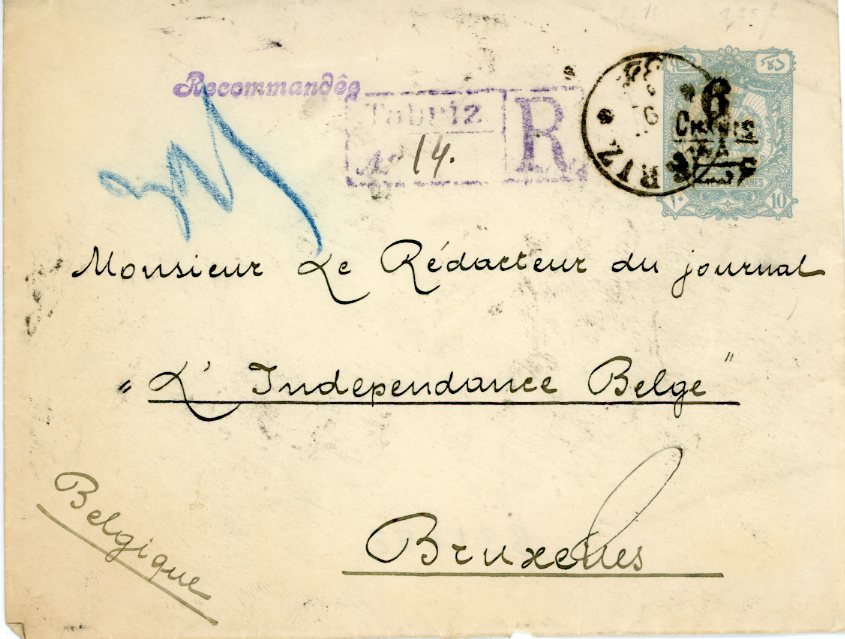 Recommandée
Tabriz
No 14.
R
6
CHAHIS
10
Monsieur Le Rédacteur du journal
"L'Indépendance Belge"
Bruxelles
Belgique